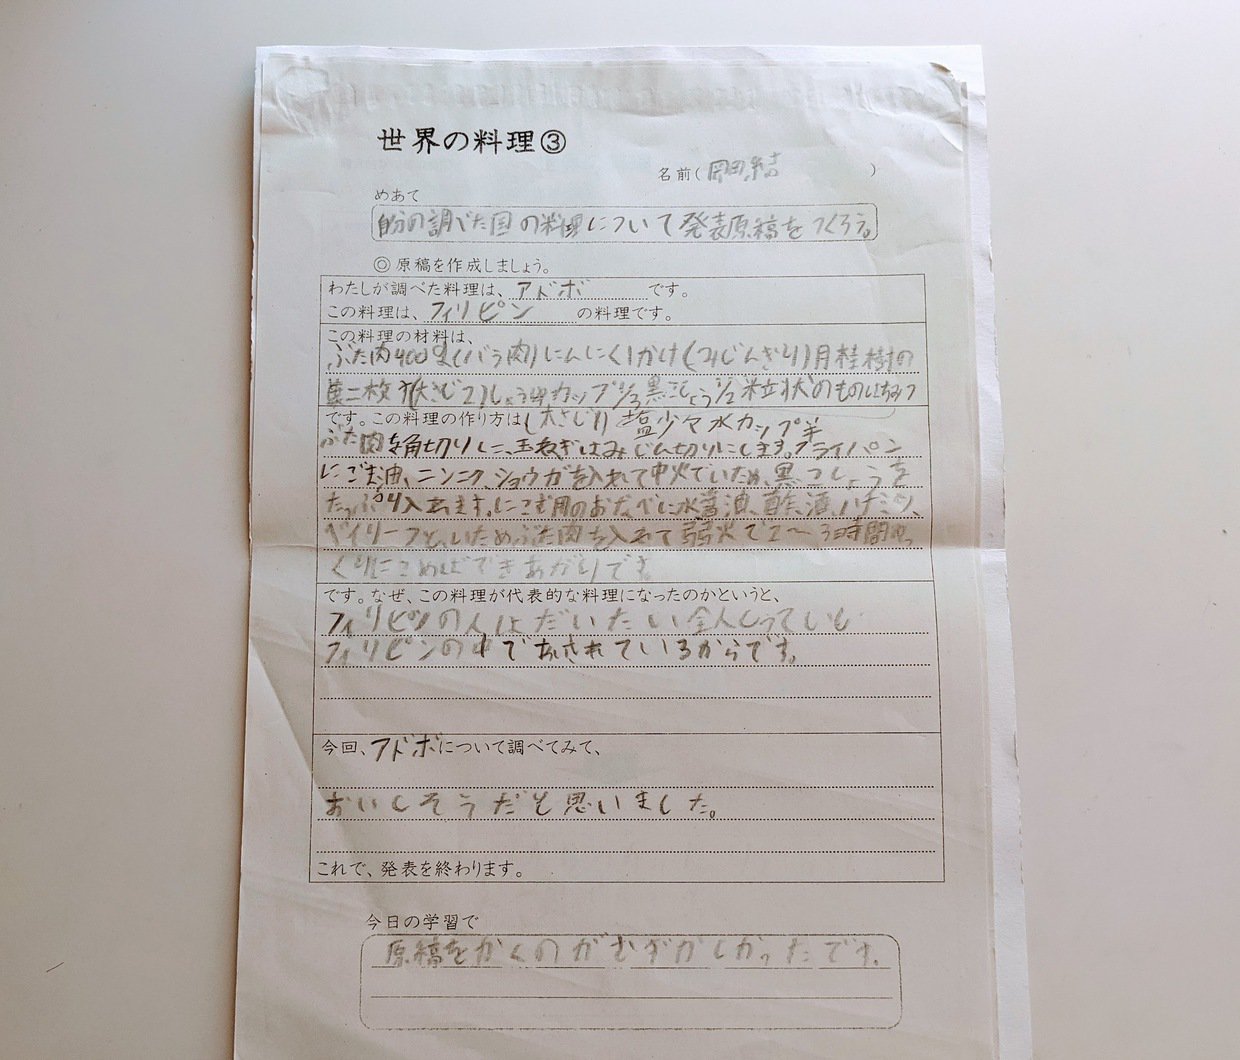 世界の料理③
名前(岡田結)
めあて
自分の調べた国の料理について発表原稿をつくろう。
◎原稿を作成しましょう。
わたしが調べた料理は、アドボです。
この料理は、フィリピンの料理です。
この料理の材料は、
ぶた肉400g(バラ肉)にんにく1かけ(みじんぎり)月桂樹の
葉二枚 す(大さじ2)しょうゆカップ1/3黒こしょう1/2 粒状のもの はちみつ
です。この料理の作り方は(大さじ1) 塩少々 水カップ半
ぶた肉を角切りに、玉ねぎはみじん切りにします。フライパン
にごま油、ニンニク、ショウガを入れて中火でいため、黒こしょうを
たっぷり入れます。にこむ用のおなべに水、醤油、酢、酒、ハチミツ、
ベイリーフと、いためぶた肉を入れて弱火で2〜3時間ゆっ
くりにこめばできあがりです。
です。なぜ、この料理が代表的な料理になったのかというと、
フィリピンの人はだいたい全人しっていし
フィリピンの中であいされているからです。
今回、アドボについて調べてみて、
おいしそうだと思いました。
これで、発表を終わります。
今日の学習で
原稿をかくのがむずかしかったです。